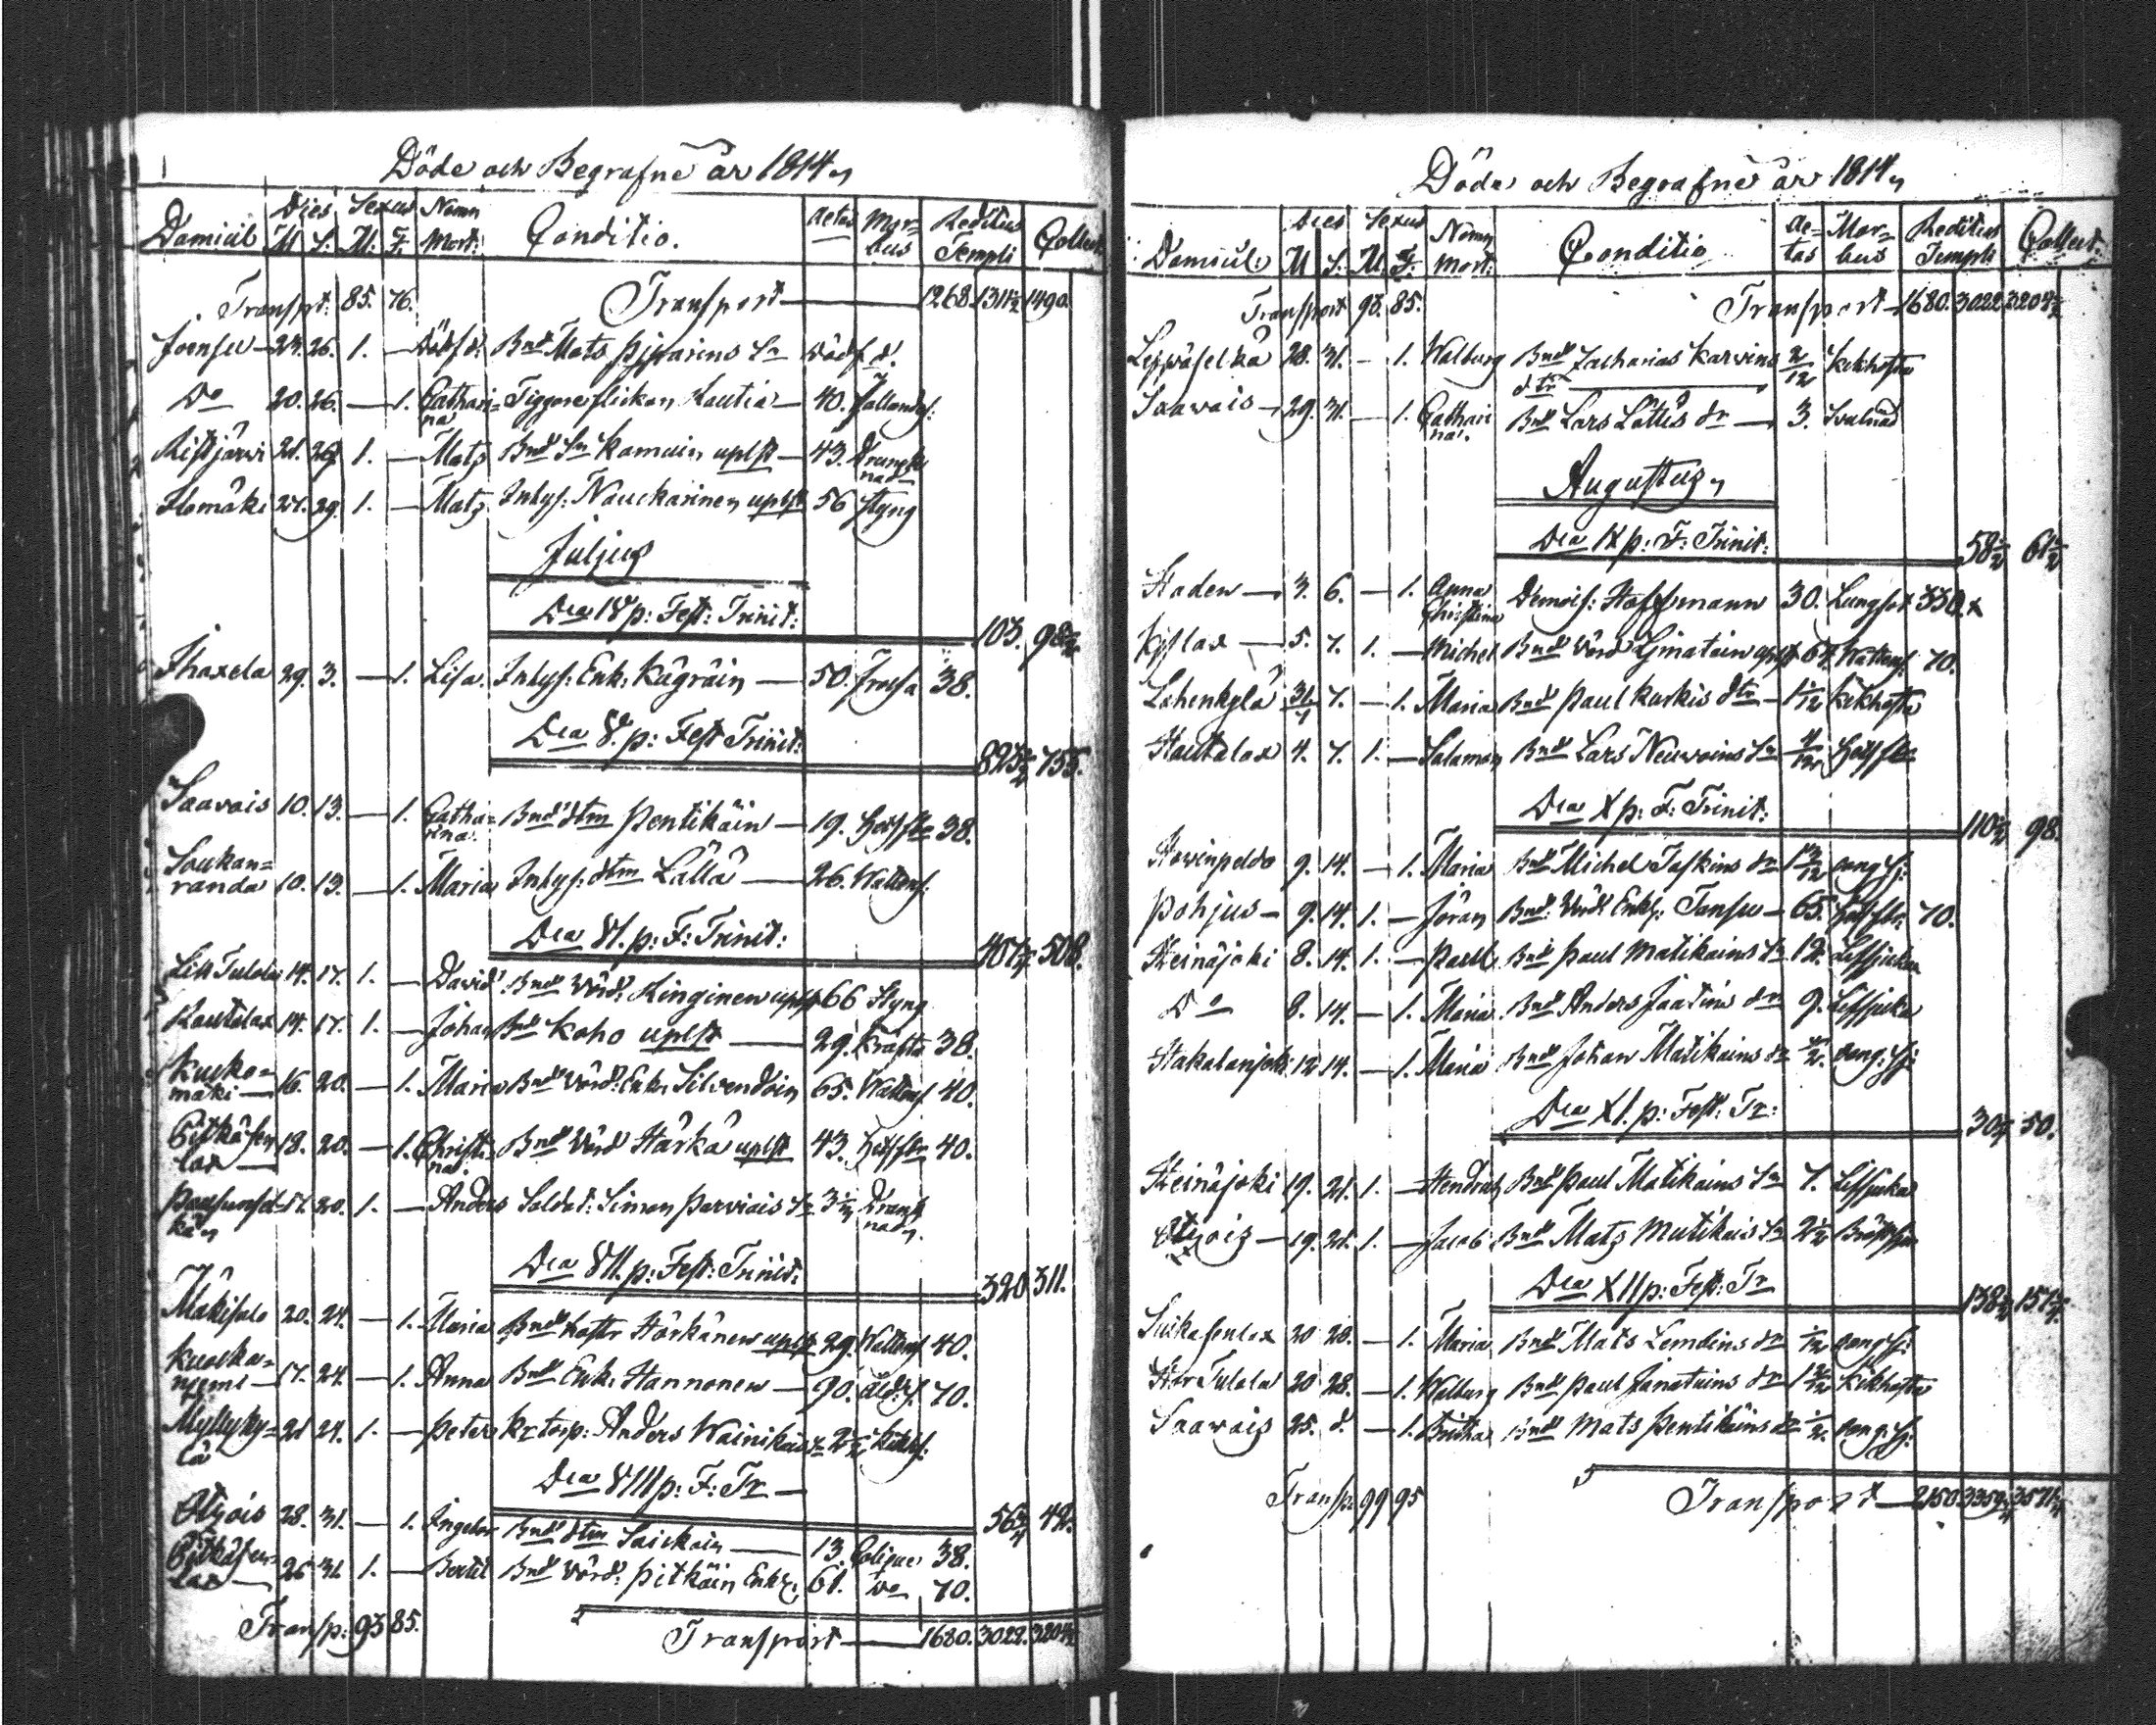 Döde och Begrafne år 1814
Domicil Dies M S: Sexus M. F. Nomn Mort: Conditio. Aetas Morbus Reditus Templi Collect
Transprt: 85. 76. Transport 1268. 1311½ 1490.
Joensu 23. 26. 1. — Dödf d: Bnd Mats Pijparins Sn Dödf. d.
Do 20. 26. — 1. Cathari=na Tiggare flickan Kautia 40. fallandes:
Ristjärwi 21. 26. 1. — Matz Bnd Sn Kamain uplst 43. Drunknad
Ilomäki 27. 29. 1. — Matz Inhys: Nauckarinen uplst 56 Styng
Julius
Dca IV p: Fest: Trinit: 103. 98½
Ihaxela 29. 3. — 1. Lisa. Inhys: Enk: Kägräin 50. frossa 38.
Dca V. p: Fest Trinit: 823½ 755.
Saavais 10. 13. — 1. Catha=rina. Bnd dtm Pentikäin 19. Hetsfbr 38.
Soukan=randa 10. 13. — 1. Maria Inhys: dtm Lällä 26. Wattens:
Dca VI. p: F: Trinit: 407½ 508.
Lill Tulola 14. 17. 1. — David Bnd Wörd: Kinginen uplst 66 Styng
Rautalax 14. 17. 1. — Johan Bnd Koho uplst 29. Kräfta 38.
Kurko=mäki 16. 20. — 1. Maria Bnd Wörd: Enk: Silvendöin 65. Wattens 40.
Pitkäsen lax 18. 20. — 1. Christi=na. Bnd Wörd Härkä uplst 43. Hetsfbr 40.
Pausunsel=kä 17. 20. 1. — Anders Soldat: Simon Parviais Sn 3½ Drunknad.
Dca VII. p: Fest: Trinit: 320 311.
Mäkisalo 20. 24. — 1. Maria Bnd hustr Härkänen uplst 29. Wattens 40.
Kuocka=niemi 17. 24. — 1. Anna Bnd Enk: Hannonen 90. åld: 70.
Myllyky=lä 21 24. 1. — Peter Kr torp: Anders Wainikais Kikhs:
Dca VIII p: F: Tr 56¾ 42.
Otzois 28. 31. — 1. Ingebor Bnd dtm Saickain 13. Colique 38.
Pitkäsen=lax 26 31. 1. — Bertil Bnd Wörd: Pitkäin Enkl: 61. Do 70.
Transp: 93 85. Transport 1680. 3022. 3204½
Döde och Begrafne år 1814
Domicil: Dies M S: Sexus M F: Nomn mort: Conditio Ae=tas Mor=bus Reditus Templi Collect.
Transport 93. 85. Transport 1680. 3022 3204½
Leppäselkä 28. 31. — 1. Walborg Bnd Zacharias Karvins dtr 2/12 Kikhosta
Saavais 29. 31. — 1. Cathari na. Bnd Lars Lättis dr 3. Svulnad
Augustus
Dca IX p: F: Trinit: 58½ 61½
Staden 3. 6. — 1. Anna Christina Demois: Hoffmann 30. Lungsot 330.x
Kijslax 5. 7. 1. — Michel Bnd Wörd Ijmatain uplst 64 Wattens 70.
Lahenkylä 31/7 7. — 1. Maria Bnd Paul Kurkis dtr Kikhosta
Hautalax 4. 7. 1. — Salamon Bnd Lars Neuvoins Sn Hetsfbr
Dca X p: F: Trinit: 110½ 98.
Hovinpeldo 9. 14. — 1. Maria Bnd Michel Jaskins dr
Pohjus 9. 14. 1. — Jöran Bnd: Wörd Enkl: Tansu 65. Hetsfbr 70.
Heinäjoki 8. 14. 1. — Paul Bnd Paul Matikains Sn 12. Lifsjuka
Do 8. 14. — 1. Maria Bnd Anders Jaatins dr 9. Lifsjuka
Hakalanjoki 12 14. — 1. Maria Bnd Johan Matikains dr
Dca XI. p: Fest: Tr: 30¾ 50.
Heinäjoki 19. 21. 1. — Hendrich Bnd Paul Matikains Sn 7. Lifsjuka
Otzois 19. 21. 1. — Jacob Bnd Matz Mutikais Sn 2½
Dca XII p: Fest: Tr 138½ 151½
Suikasenlax 20 28. — 1. Maria Bnd Mats Lemdeins dr
Stor Tulola 20 28. — 1. Walborg Bnd Paul Janatuins dr Kikhosta
Saavais 25. d. — 1. Britha Bnd Mats Pentikäins dr
Transp: 99 95 Transport 2150 3359¾ 3571¼